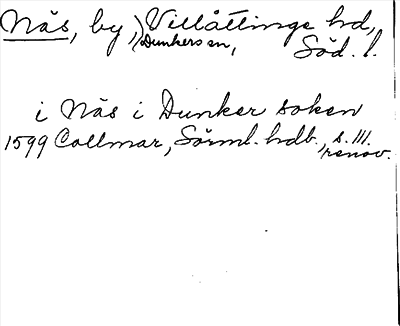 Näs, by, Villåttinge hd,
Dunkers sn, Söd. l.
i Näs i Dunker soken
1599 Collmar, Sörml. hdb., s. 111.
renov.